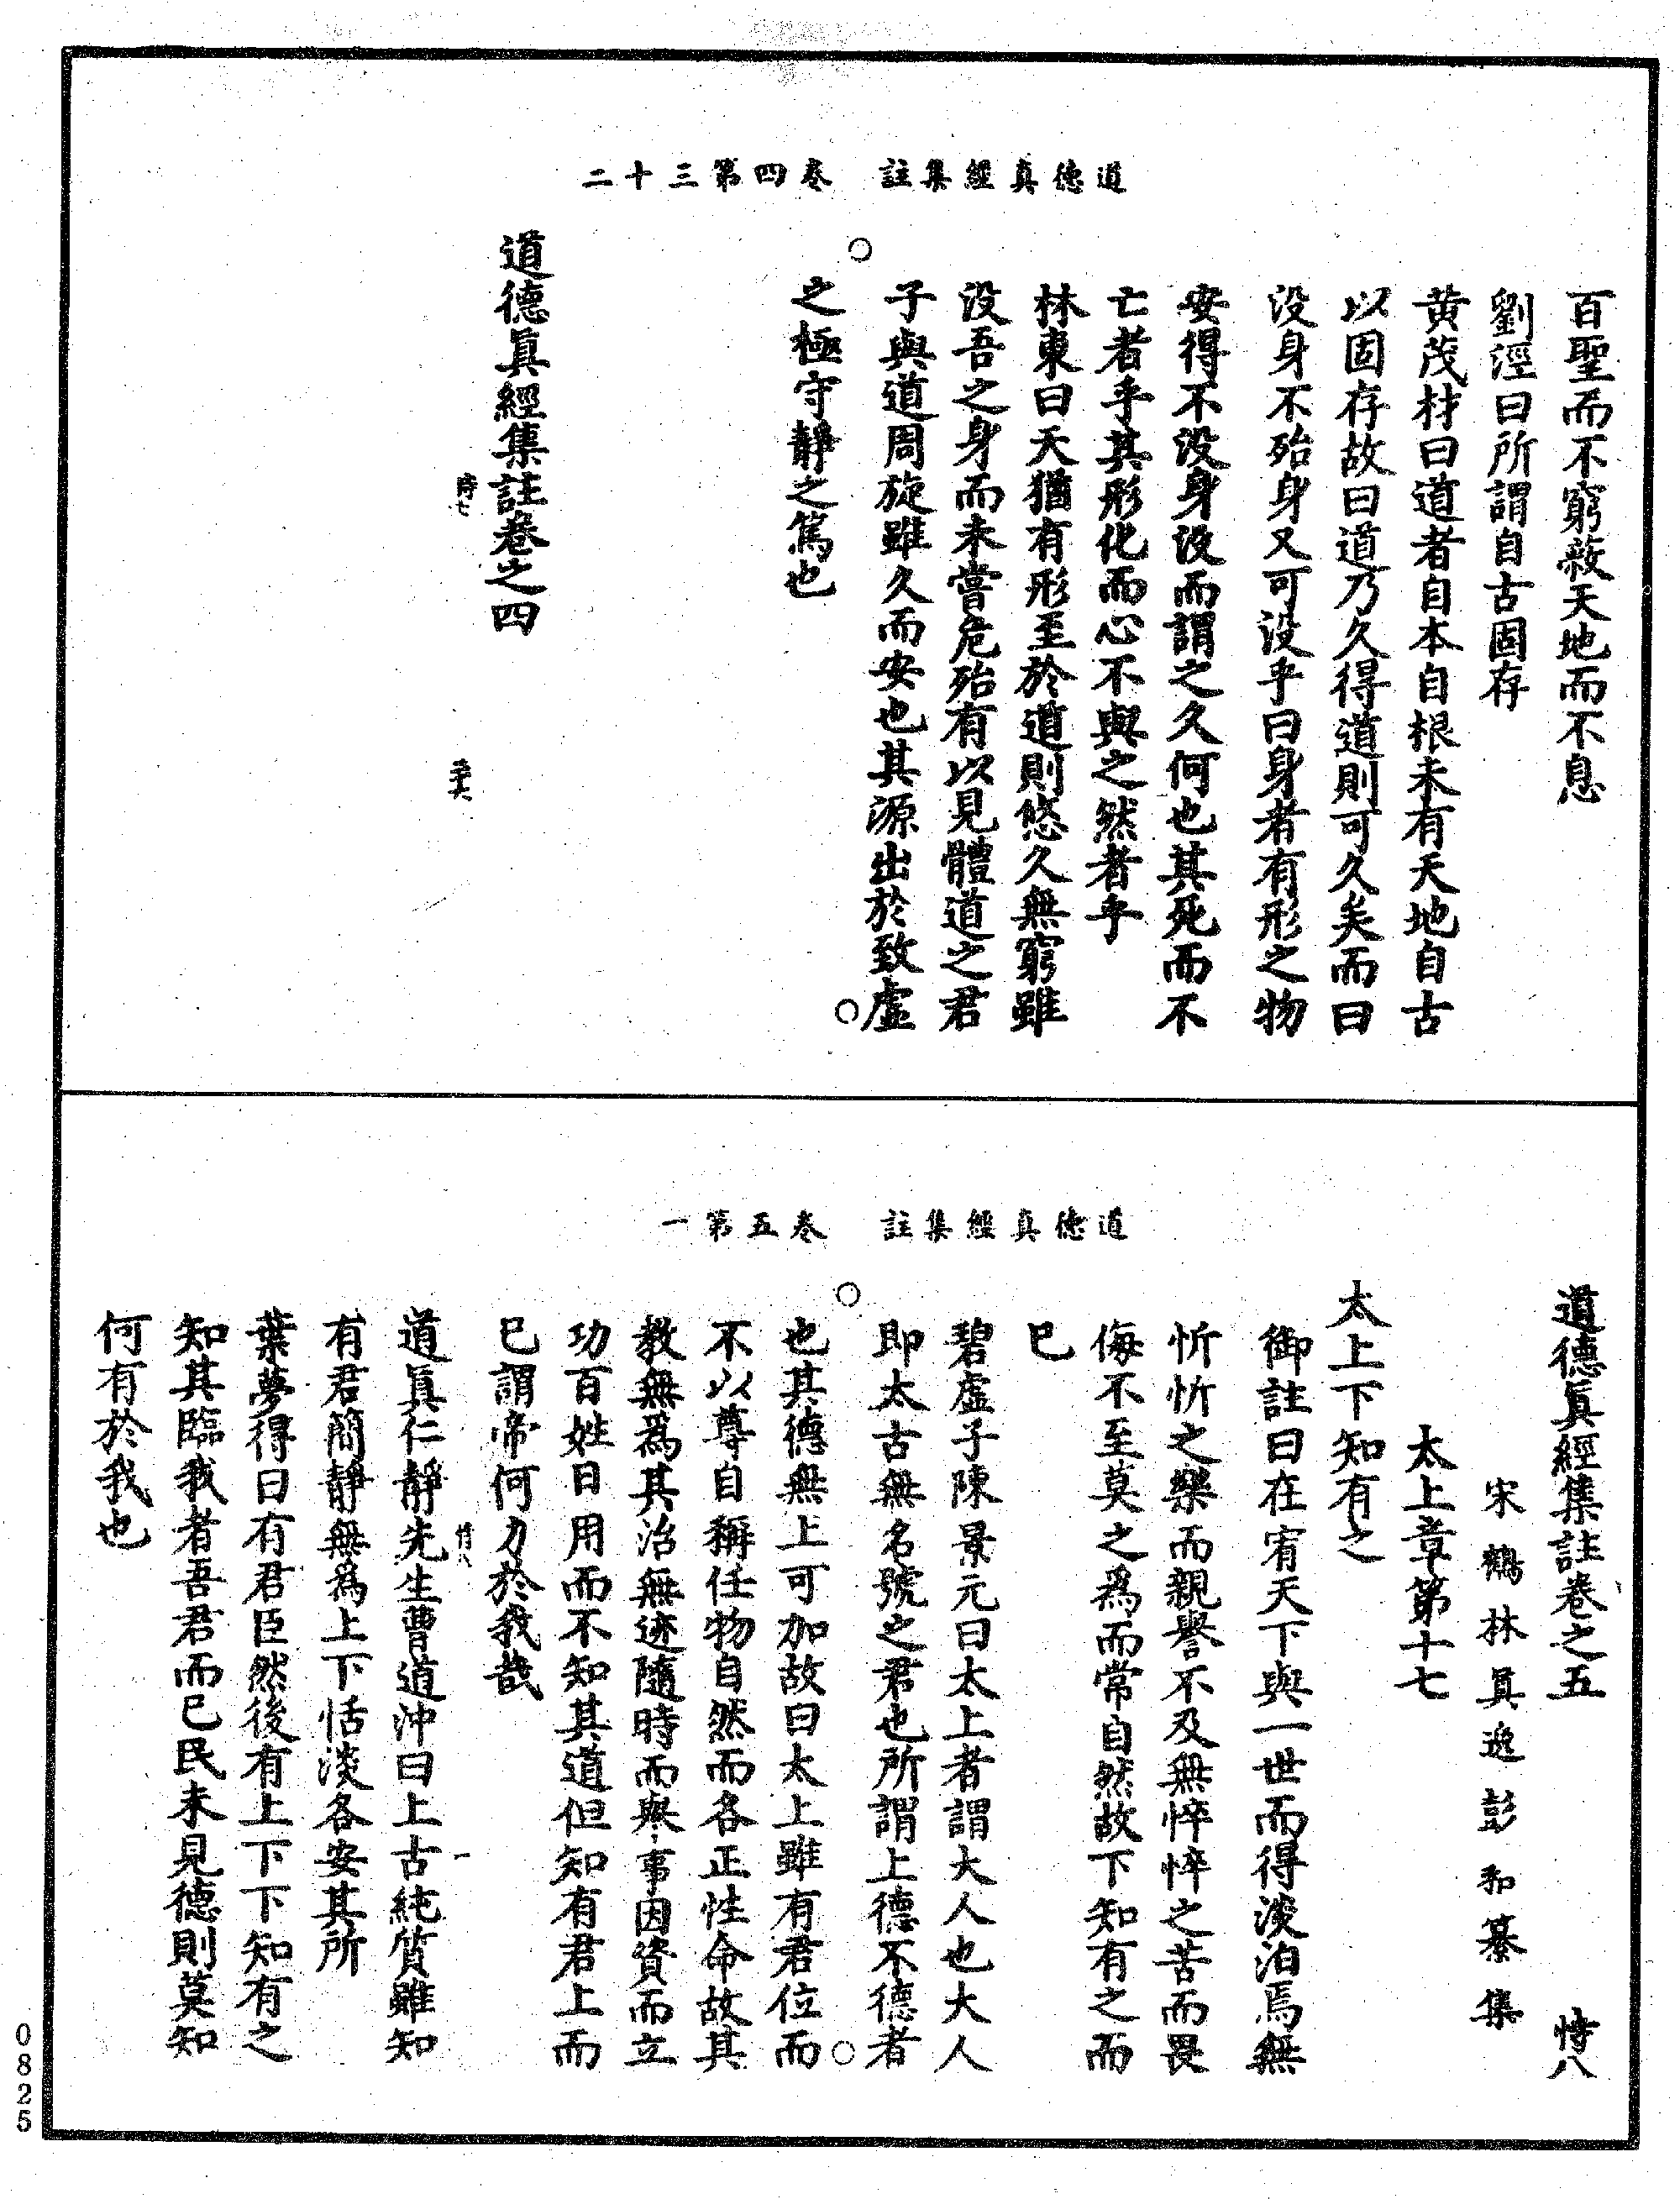 道德真經集註　卷四第三十二
百聖而不窮蔽天地而不息
劉涇曰所謂自古固存
黃茂材曰道者自本自根未有天地自古
以固存故曰道乃久得道則可久矣而曰
没身不殆身又可没乎曰身者有形之物
安得不没身没而謂之久何也其死而不
亡者乎其形化而心不與之然者乎
林東曰天猶有形至於道則悠久無窮雖
没吾之身而未嘗危殆有以見體道之君
子與道周旋雖久而安也其源出於致虛
之極守靜之篤也
道德眞經集註卷之四
道德真經集註　卷五第一
道德眞經集註卷之五　恃八
宋鶴林真逸彭耜纂集
太上章第十七
太上下知有之
御註曰在宥天下與一世而得淡泊焉無
忻忻之樂而親譽不及無悴悴之苦而畏
侮不至莫之爲而常自然故下知有之而
已
碧虛子陳景元曰太上者謂大人也大人
即太古無名號之君也所謂上德不德者
也其德無上可加故曰太上雖有君位而
不以尊自稱任物自然而各正性命故其
教無爲其治無迹隨時而舉事因資而立
功百姓日用而不知其道但知有君上而
已謂帝何力於我哉
道眞仁靜先生曹道沖曰上古純質雖知
有君簡靜無爲上下恬淡各安其所
葉夢得曰有君臣然後有上下下知有之
知其臨我者吾君而已民未見德則莫知
何有於我也
0825